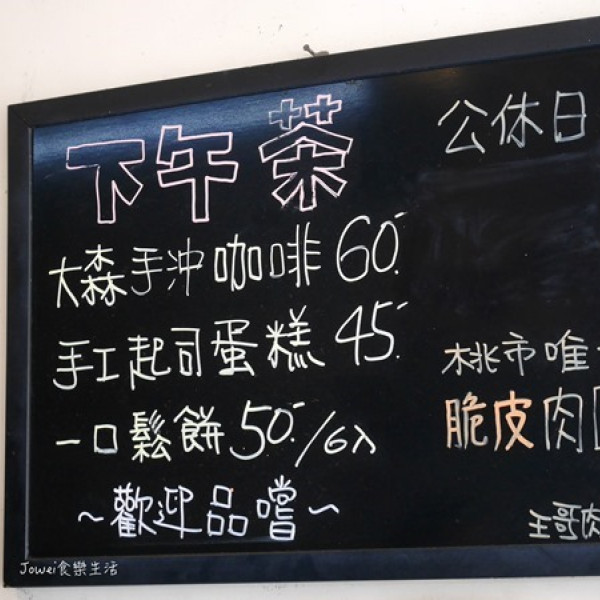 下午茶
大森手沖咖啡 60.-
手工起司蛋糕 45.-
一口鬆餅 50.-/6入
~歡迎品嚐~
公休日
桃市唯
脆皮肉
王哥肉
Jowei食樂生活